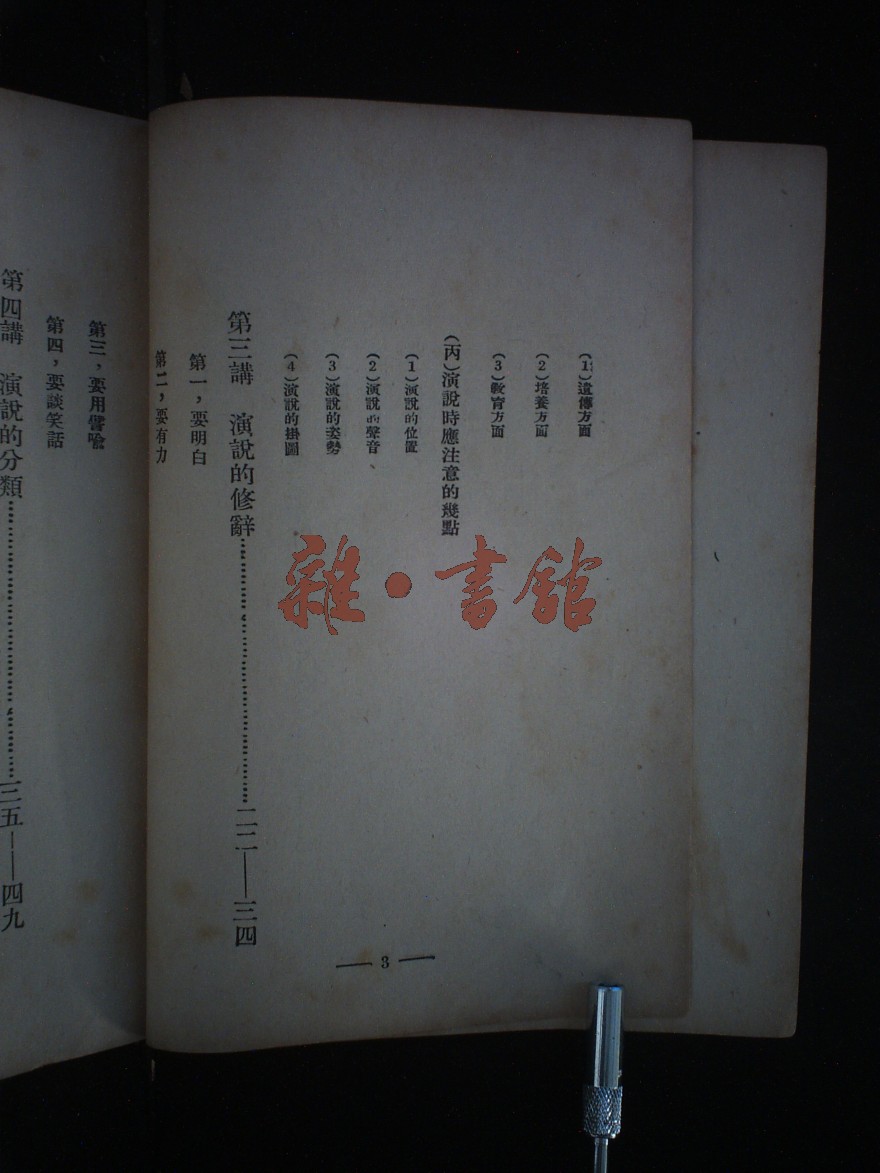 (1)遺傳方面
(2)培養方面
(3)敎育方面
(丙)演說時應注意的幾點
(1)演說的位置
(2)演說的聲音
(3)演說的姿勢
(4)演說的掛圖
第三講　演說的修辭…………………………二二——三四
第一，要明白
第二，要有力
— 3 —
第三，要用譬喩
第四，要談笑話
第四講　演說的分類…………………………三五——四九
雜·書館